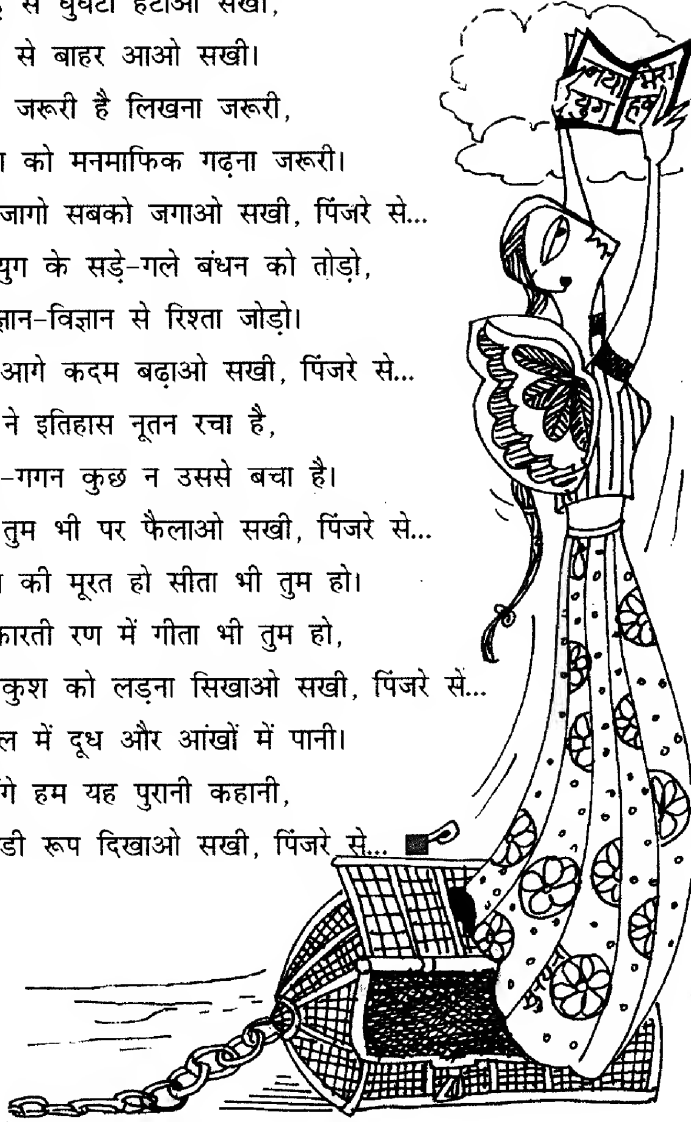 से घुंघटा हटाओ सखी,
से बाहर आओ सखी।
जरूरी है लिखना जरूरी,
को मनमाफिक गढ़ना जरूरी।
जागो सबको जगाओ सखी, पिंजरे से...
युग के सड़े-गले बंधन को तोड़ो,
ज्ञान-विज्ञान से रिश्ता जोड़ो।
आगे कदम बढ़ाओ सखी, पिंजरे से...
ने इतिहास नूतन रचा है,
-गगन कुछ न उससे बचा है।
तुम भी पर फैलाओ सखी, पिंजरे से...
की मूरत हो सीता भी तुम हो।
रण में गीता भी तुम हो,
कुश को लड़ना सिखाओ सखी, पिंजरे से...
में दूध और आंखों में पानी।
हम यह पुरानी कहानी,
रूप दिखाओ सखी, पिंजरे से...
नया मेरा
युग हक